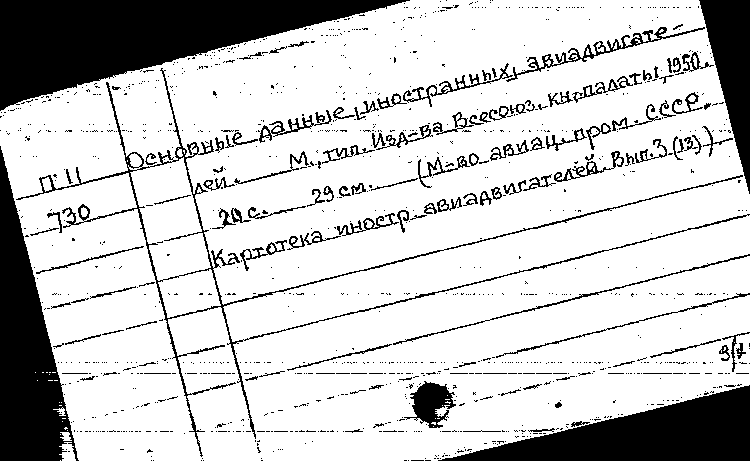 Основные данные иностранных авиадвигате-
П 11
лей. М., тип. Изд-ва Всесоюз. кн. палаты, 1950.
730
20 с. 29 см. (М-во авиац. пром. СССР.
Картотека иностр. авиадвигателей. Вып. 3 (13))